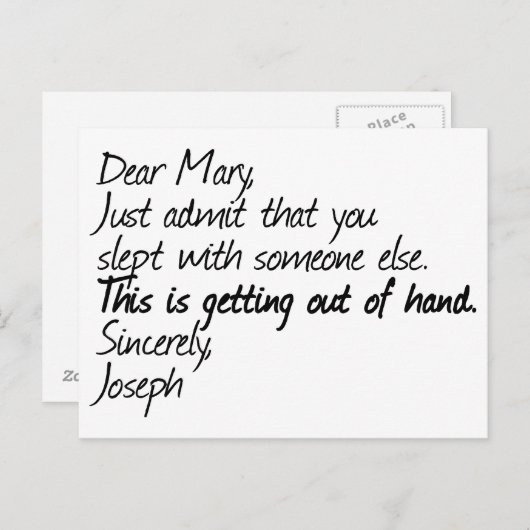 Place
Dear Mary,
Just admit that you
slept with someone else.
This is getting out of hand.
Sincerely,
Joseph